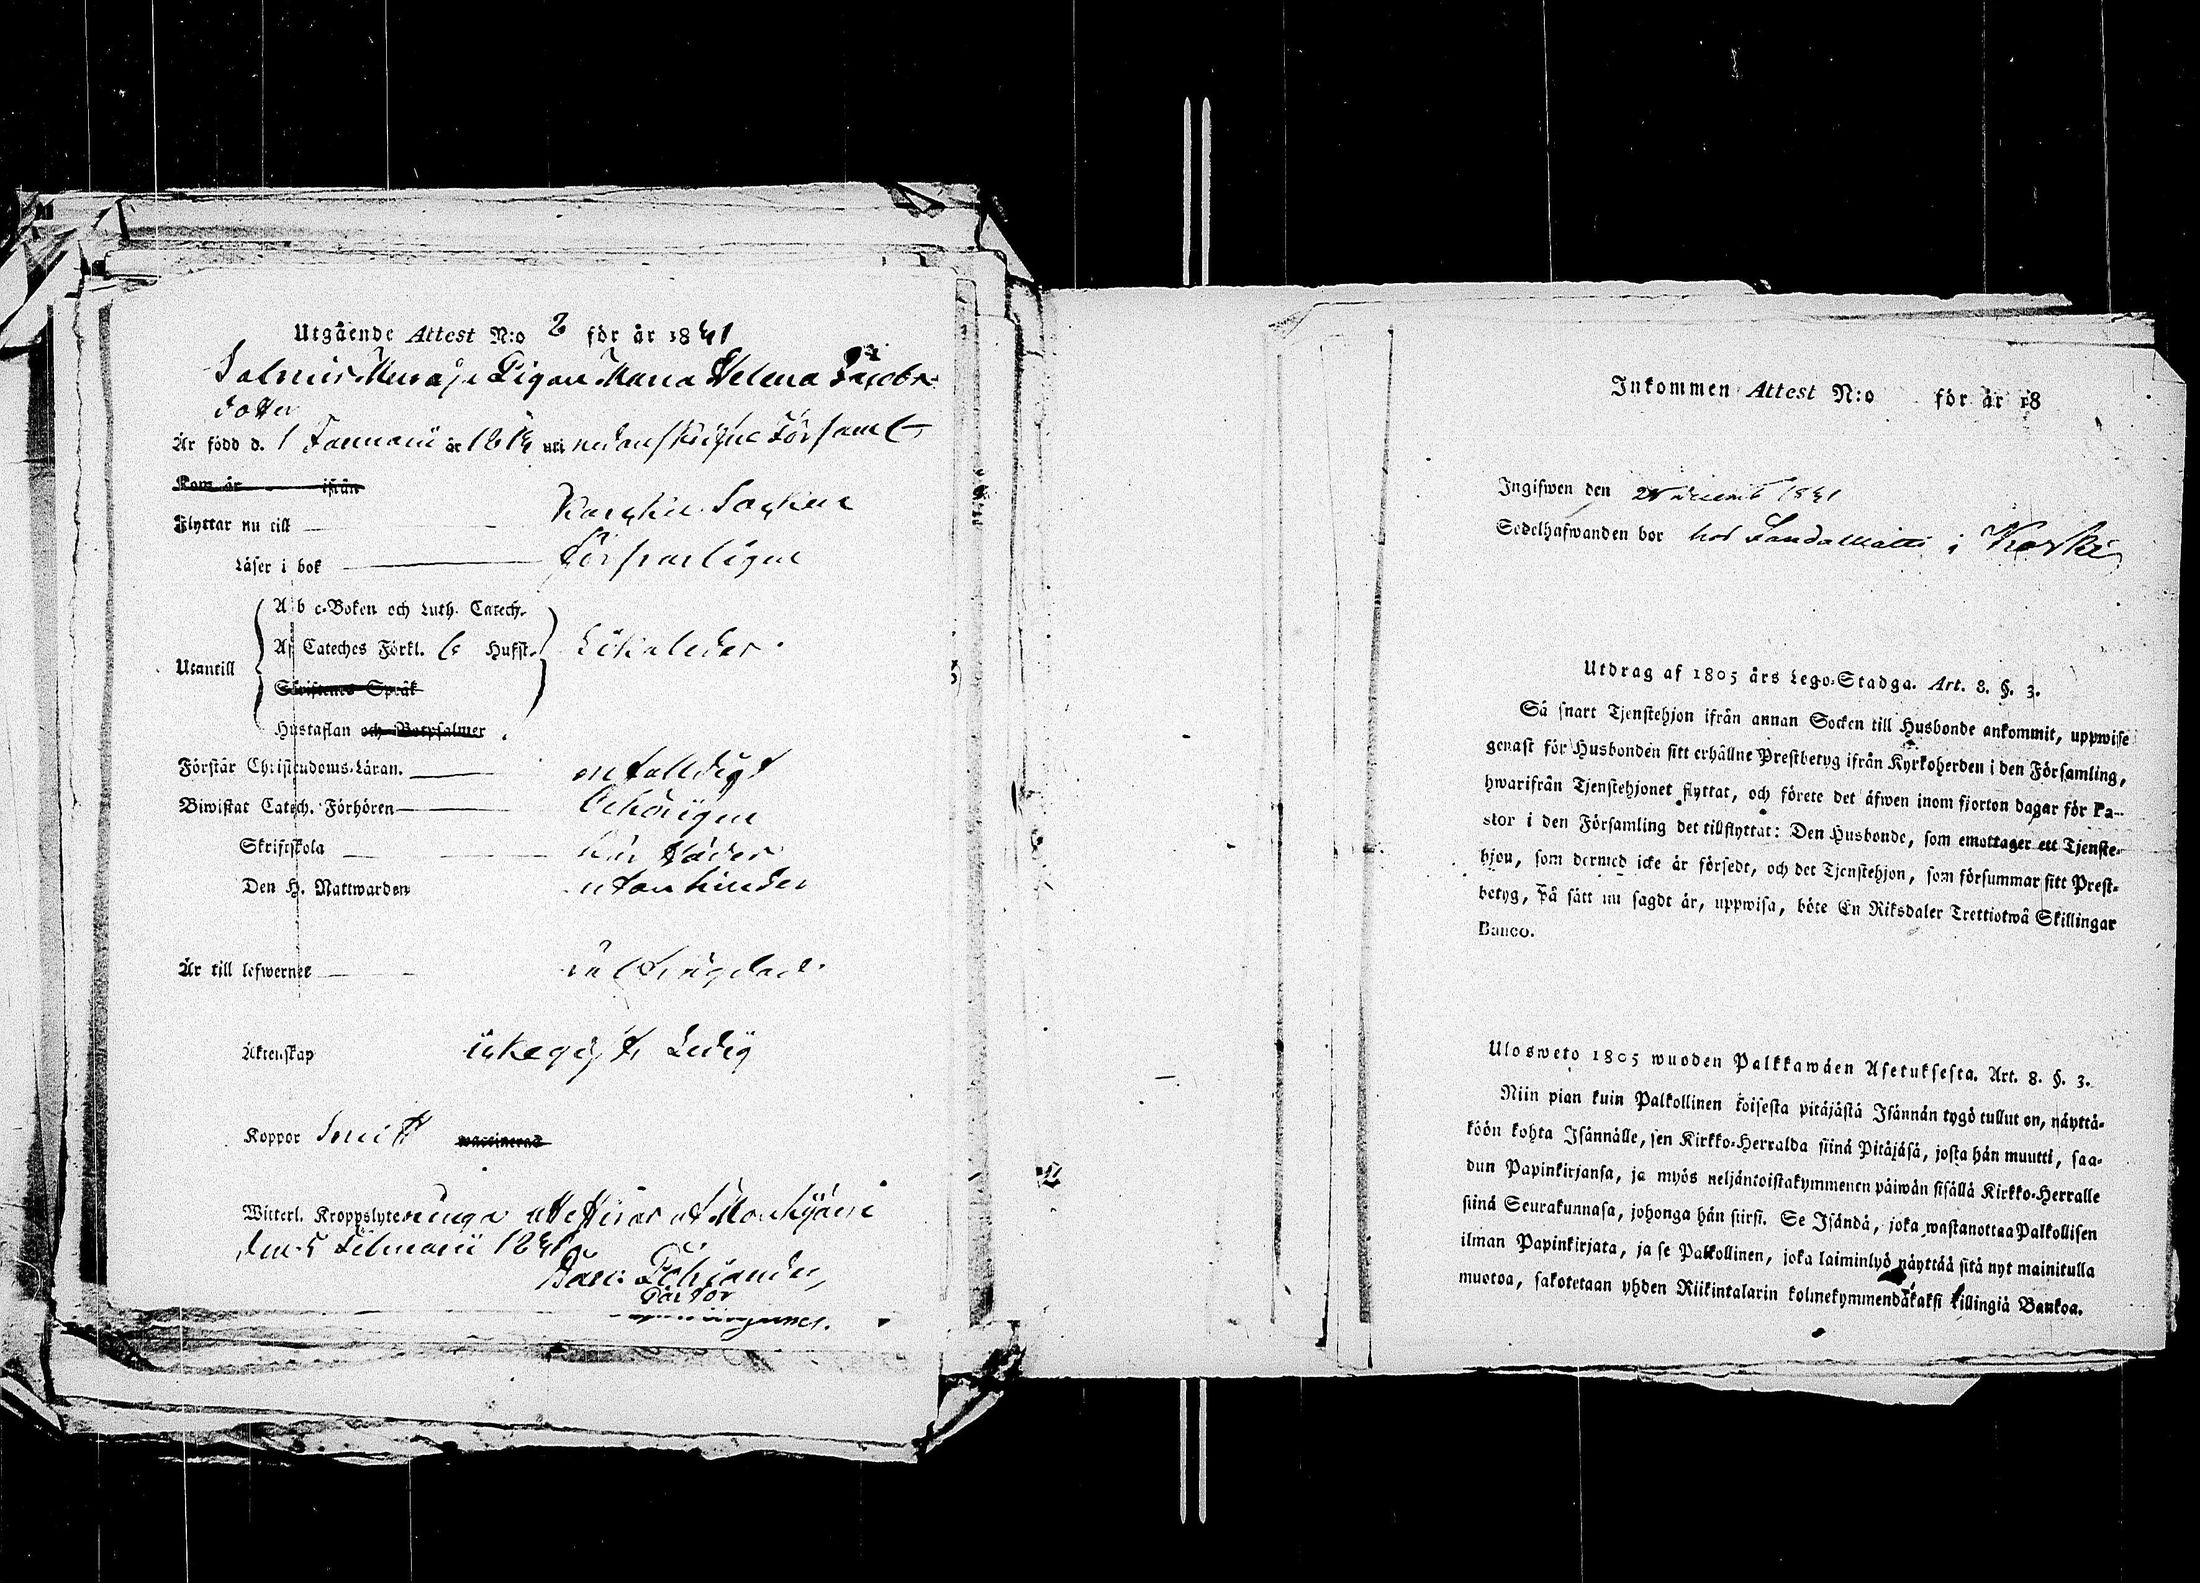 Utgående Attest N:o 2 för år 1841
Pigan Maria Helena Jacobs-
dotter
Är född d. 1 Januarii år 181 uti nedanskrifne Församl
Kom år ifrån
Flyttar nu till Karcku Sockn
Läser i bok försvarligen
A b c-Boken och Luth. Catech.
Utantill Af Cateches Förkl. 6 Hufst. Likaledes
Skriftenes Språk
Hustaflan och Botpsalmer
Förstår Christendoms-Läran. enfalldigt
Biwistat Catech. Förhören behörigen
Skriftskola
Den H. Nattwarden utan hinder
Är till lefwernet
Äktenskap Ledig
Koppor haft waccinerad
Witterl. Kroppslyten inga attesterar af Mouhijärvi
den 5 Februarii 1841
Pastor
Inkommen Attest N:o för år 18
Ingifwen den 1841
Sedelhafwanden bor hos i Koski
Utdrag af 1805 års Lego-Stadga. Art. 8. §. 3.
Så snart Tjenstehjon ifrån annan Socken till Husbonde ankommit, uppwise
genast för Husbonden sitt erhållne Prestbetyg ifrån Kyrkoherden i den Församling,
hwarifrån Tjenstehjonet flyttat, och förete det äfwen inom fjorton dagar för Pa-
stor i den Församling det tillflyttat: Den Husbonde, som emottager ett Tjenste-
hjon, som dermed icke är försedt, och det Tjenstehjon, som försummar sitt Prest-
betyg, på sätt nu sagdt är, uppwisa, böte En Riksdaler Trettiotwå Skillingar
Banco.
Ulosweto 1805 wuoden Palkkawäen Asetuksesta. Art. 8. §. 3.
Niin pian kuin Palkollinen toisesta pitäjästä Isännän tygö tullut on, näyttä-
köön kohta Isännälle, sen Kirkko-Herralda siinä Pitäjäsä, josta hän muutti, saa-
dun Papinkirjansa, ja myös neljäntoistakymmenen päiwän sisällä Kirkko-Herralle
siinä Seurakunnasa, johonga hän siirsi. Se Isändä, joka wastanottaa Palkollisen
ilman Papinkirjata, ja se Palkollinen, joka laiminlyö näyttää sitä nyt mainitulla
muotoa, sakotetaan yhden Riikintalarin kolmekymmendäkaksi killingiä Bankoa.